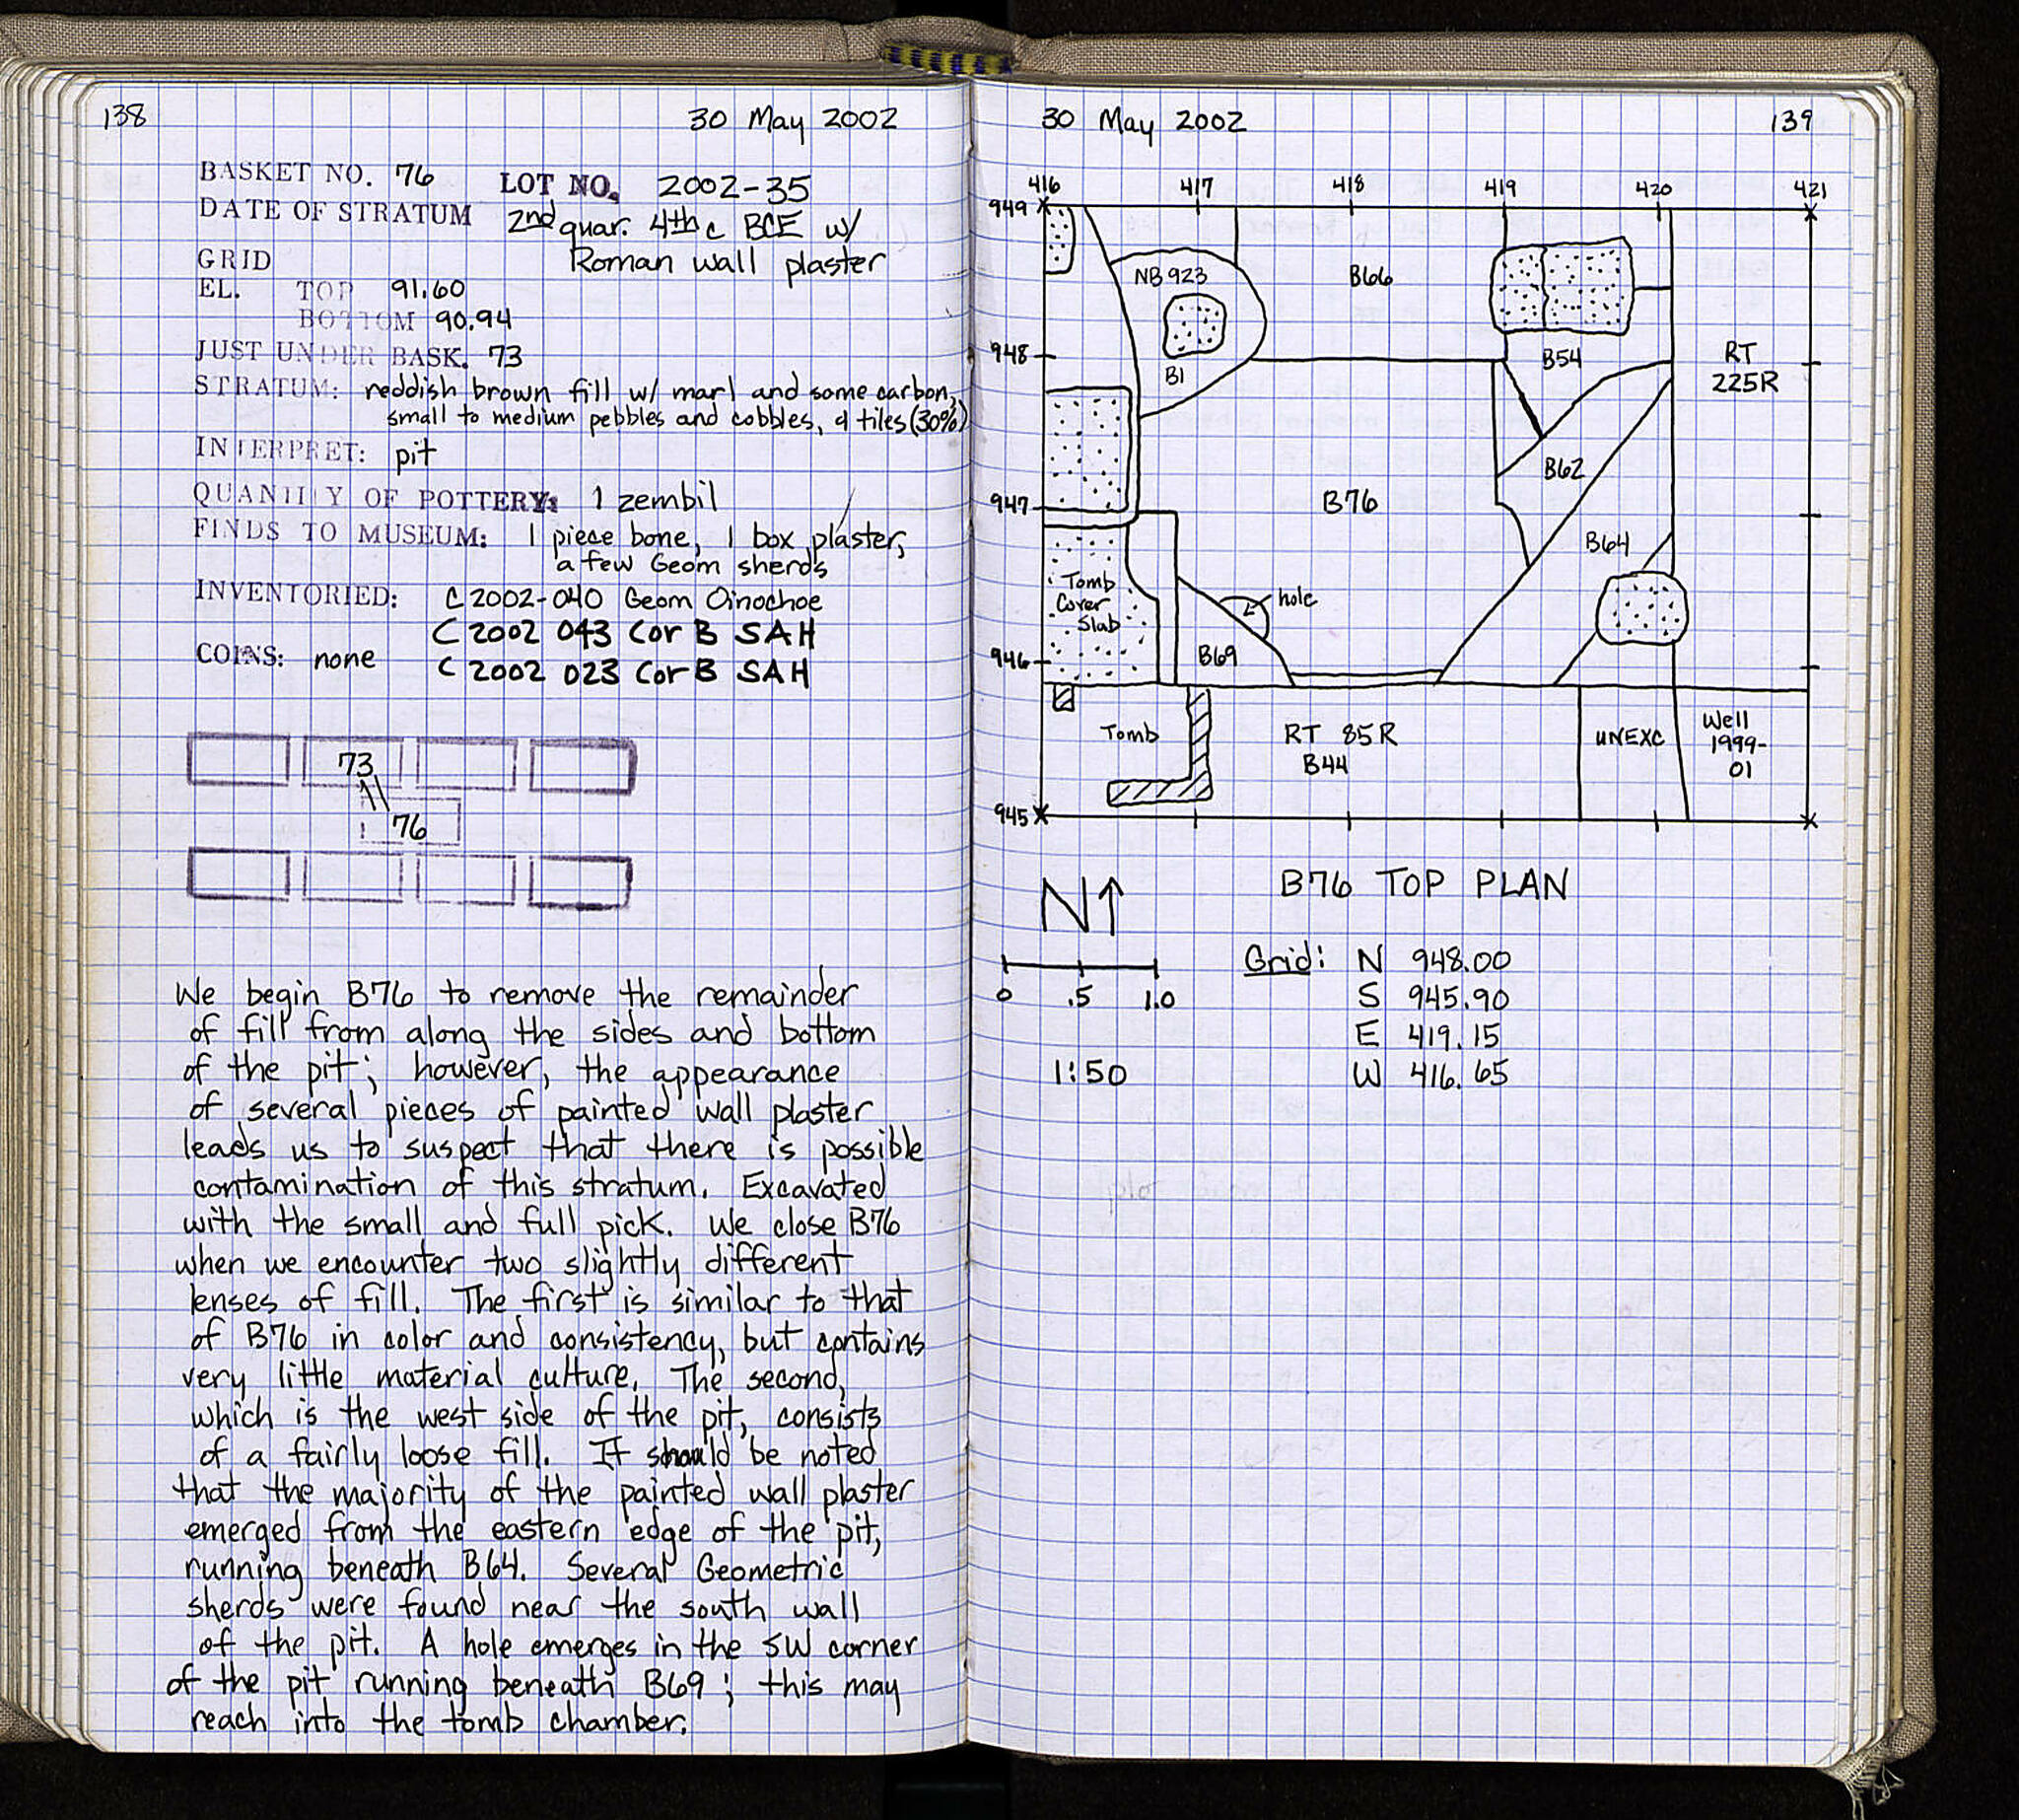 138
30 May 2002
BASKET NO. 76 LOT NO. 2002-35
DATE OF STRATUM 2nd quar. 4th c BCE w/
Roman wall plaster
GRID
EL. TOP 91.60
BOTTOM 90.94
JUST UNDER BASK. 73
STRATUM: reddish brown fill w/ marl and some carbon,
small to medium pebbles and cobbles, & tiles (30%)
INTERPRET: pit
QUANTITY OF POTTERY: 1 zembil
FINDS TO MUSEUM: 1 piece bone, 1 box plaster,
a few Geom sherds
INVENTORIED: C2002-040 Geom Oinochoe
C 2002 043 Cor B SAH
COINS: none C 2002 023 Cor B SAH
73
76
We begin B76 to remove the remainder
of fill from along the sides and bottom
of the pit; however, the appearance
of several pieces of painted wall plaster
leads us to suspect that there is possible
contamination of this stratum. Excavated
with the small and full pick. We close B76
when we encounter two slightly different
lenses of fill. The first is similar to that
of B76 in color and consistency, but contains
very little material culture. The second,
which is the west side of the pit, consists
of a fairly loose fill. It should be noted
that the majority of the painted wall plaster
emerged from the eastern edge of the pit,
running beneath B64. Several Geometric
sherds were found near the south wall
of the pit. A hole emerges in the SW corner
of the pit running beneath B69; this may
reach into the tomb chamber.
30 May 2002
139
416 417 418 419 420 421
949
NB 923
B66
948
B1
B54
RT
225R
B62
947
B76
B64
Tomb
Cover
Slab
hole
946
B69
Tomb
RT 85R
B44
UNEXC
Well
1999-
01
945
N
B76 TOP PLAN
Grid: N 948.00
0 .5 1.0
S 945.90
E 419.15
1:50
W 416.65